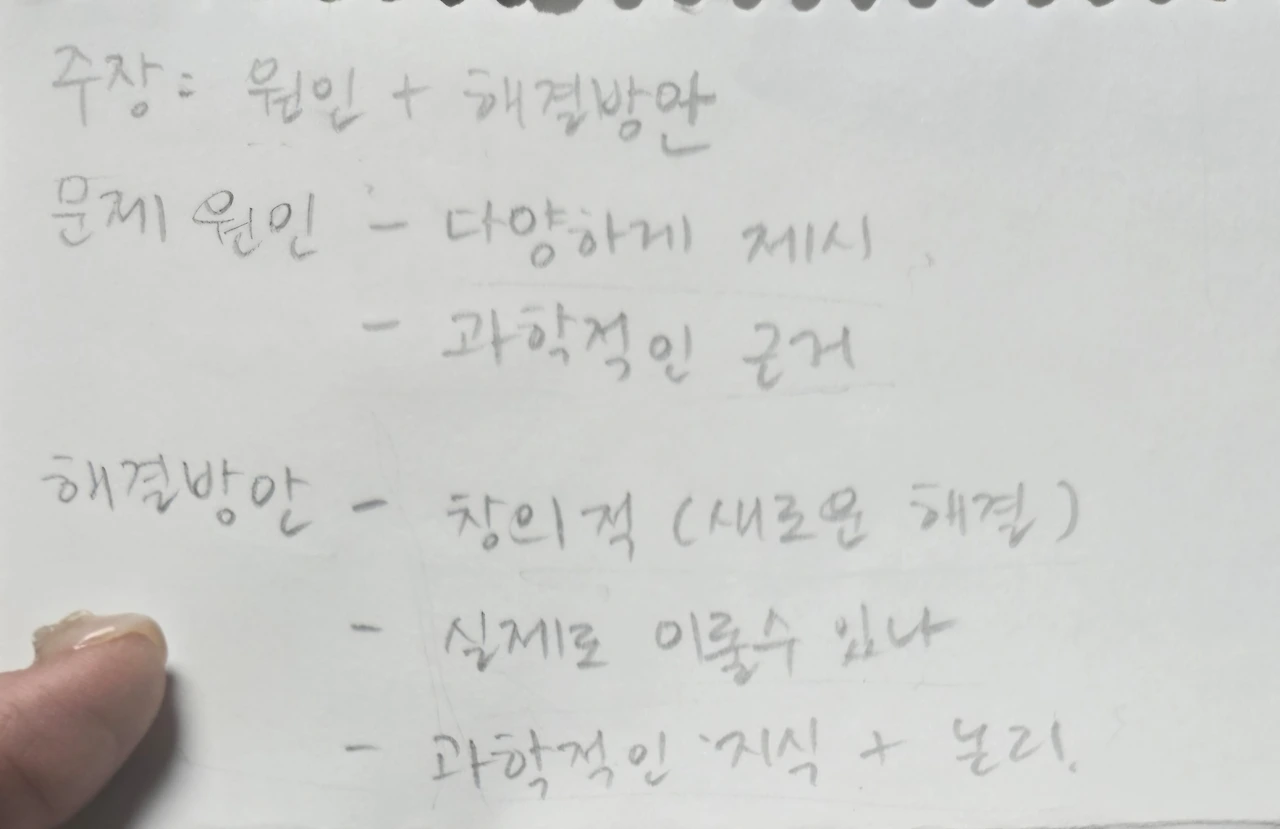 주장: 원인 + 해결방안
문제 원인 - 다양하게 제시
- 과학적인 근거
해결방안 - 창의적 (새로운 해결)
- 실제로 이룰수 있나
- 과학적인 지식 + 논리.